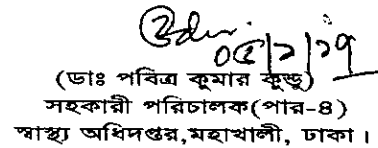 ০৫/২/১৭
(ডাঃ পবিত্র কুমার কুন্ডু)
সহকারী পরিচালক(পার-৪)
স্বাস্থ্য অধিদপ্তর,মহাখালী, ঢাকা।